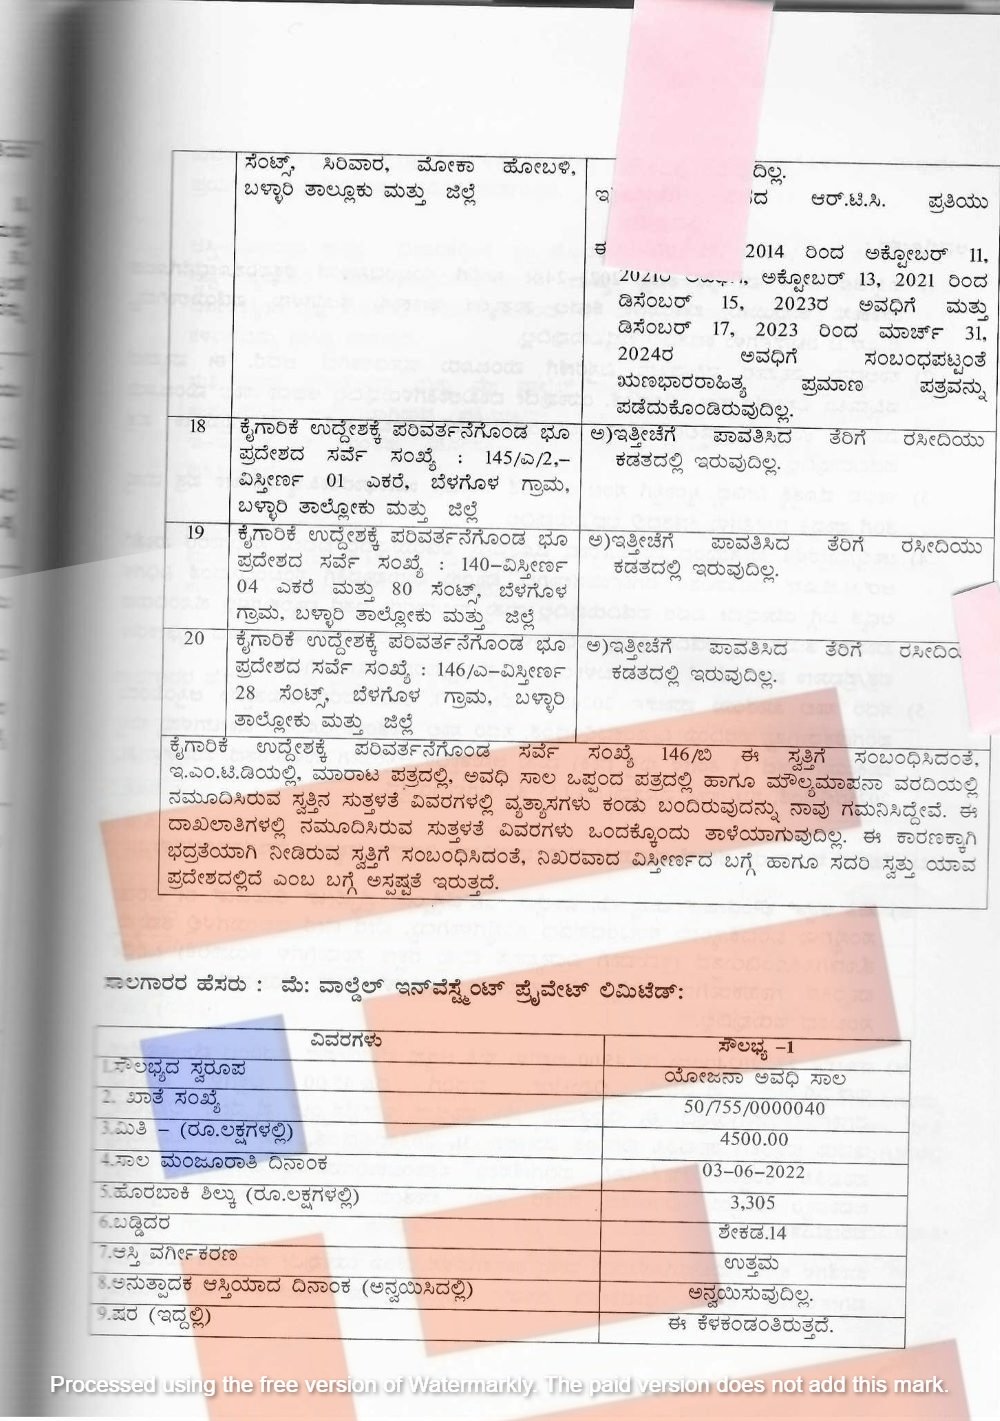 ಸೆಂಟ್ಸ್, ಸಿರಿವಾರ, ಮೋಕಾ ಹೋಬಳಿ,
ಬಳ್ಳಾರಿ ತಾಲ್ಲೂಕು ಮತ್ತು ಜಿಲ್ಲೆ
ಆರ್.ಟಿ.ಸಿ. ಪ್ರತಿಯು
2014 ರಿಂದ ಅಕ್ಟೋಬರ್ 11,
ಅಕ್ಟೋಬರ್ 13, 2021 ರಿಂದ
ಡಿಸೆಂಬರ್ 15, 2023ರ ಅವಧಿಗೆ ಮತ್ತು
ಡಿಸೆಂಬರ್ 17, 2023 ರಿಂದ ಮಾರ್ಚ್ 31,
2024ರ ಅವಧಿಗೆ ಸಂಬಂಧಪಟ್ಟಂತೆ
ಋಣಭಾರರಾಹಿತ್ಯ ಪ್ರಮಾಣ ಪತ್ರವನ್ನು
ಪಡೆದುಕೊಂಡಿರುವುದಿಲ್ಲ.
18
ಕೈಗಾರಿಕೆ ಉದ್ದೇಶಕ್ಕೆ ಪರಿವರ್ತನೆಗೊಂಡ ಭೂ
ಪ್ರದೇಶದ ಸರ್ವೆ ಸಂಖ್ಯೆ : 145/ಎ/2,–
ವಿಸ್ತೀರ್ಣ 01 ಎಕರೆ, ಬೆಳಗೊಳ ಗ್ರಾಮ,
ಬಳ್ಳಾರಿ ತಾಲ್ಲೋಕು ಮತ್ತು ಜಿಲ್ಲೆ
ಅ)ಇತ್ತೀಚೆಗೆ ಪಾವತಿಸಿದ ತೆರಿಗೆ ರಸೀದಿಯು
ಕಡತದಲ್ಲಿ ಇರುವುದಿಲ್ಲ.
19
ಕೈಗಾರಿಕೆ ಉದ್ದೇಶಕ್ಕೆ ಪರಿವರ್ತನೆಗೊಂಡ ಭೂ
ಪ್ರದೇಶದ ಸರ್ವೆ ಸಂಖ್ಯೆ : 140–ವಿಸ್ತೀರ್ಣ
04 ಎಕರೆ ಮತ್ತು 80 ಸೆಂಟ್ಸ್, ಬೆಳಗೊಳ
ಗ್ರಾಮ, ಬಳ್ಳಾರಿ ತಾಲ್ಲೋಕು ಮತ್ತು ಜಿಲ್ಲೆ
ಅ)ಇತ್ತೀಚೆಗೆ ಪಾವತಿಸಿದ ತೆರಿಗೆ ರಸೀದಿಯು
ಕಡತದಲ್ಲಿ ಇರುವುದಿಲ್ಲ.
20
ಕೈಗಾರಿಕೆ ಉದ್ದೇಶಕ್ಕೆ ಪರಿವರ್ತನೆಗೊಂಡ ಭೂ
ಪ್ರದೇಶದ ಸರ್ವೆ ಸಂಖ್ಯೆ : 146/ಎ–ವಿಸ್ತೀರ್ಣ
28 ಸೆಂಟ್ಸ್, ಬೆಳಗೊಳ ಗ್ರಾಮ, ಬಳ್ಳಾರಿ
ತಾಲ್ಲೋಕು ಮತ್ತು ಜಿಲ್ಲೆ
ಅ)ಇತ್ತೀಚೆಗೆ ಪಾವತಿಸಿದ ತೆರಿಗೆ
ಕಡತದಲ್ಲಿ ಇರುವುದಿಲ್ಲ.
ಕೈಗಾರಿಕೆ ಉದ್ದೇಶಕ್ಕೆ ಪರಿವರ್ತನೆಗೊಂಡ ಸರ್ವೆ ಸಂಖ್ಯೆ 146/ಬಿ ಈ ಸ್ವತ್ತಿಗೆ ಸಂಬಂಧಿಸಿದಂತೆ,
ಇ.ಎಂ.ಟಿ.ಡಿಯಲ್ಲಿ, ಮಾರಾಟ ಪತ್ರದಲ್ಲಿ, ಅವಧಿ ಸಾಲ ಒಪ್ಪಂದ ಪತ್ರದಲ್ಲಿ ಹಾಗೂ ಮೌಲ್ಯಮಾಪನಾ ವರದಿಯಲ್ಲಿ
ನಮೂದಿಸಿರುವ ಸ್ವತ್ತಿನ ಸುತ್ತಳತೆ ವಿವರಗಳಲ್ಲಿ ವ್ಯತ್ಯಾಸಗಳು ಕಂಡು ಬಂದಿರುವುದನ್ನು ನಾವು ಗಮನಿಸಿದ್ದೇವೆ. ಈ
ದಾಖಲಾತಿಗಳಲ್ಲಿ ನಮೂದಿಸಿರುವ ಸುತ್ತಳತೆ ವಿವರಗಳು ಒಂದಕ್ಕೊಂದು ತಾಳೆಯಾಗುವುದಿಲ್ಲ. ಈ ಕಾರಣಕ್ಕಾಗಿ
ಭದ್ರತೆಯಾಗಿ ನೀಡಿರುವ ಸ್ವತ್ತಿಗೆ ಸಂಬಂಧಿಸಿದಂತೆ, ನಿಖರವಾದ ವಿಸ್ತೀರ್ಣದ ಬಗ್ಗೆ ಹಾಗೂ ಸದರಿ ಸ್ವತ್ತು ಯಾವ
ಪ್ರದೇಶದಲ್ಲಿದೆ ಎಂಬ ಬಗ್ಗೆ ಅಸ್ಪಷ್ಟತೆ ಇರುತ್ತದೆ.
ಸಾಲಗಾರರ ಹೆಸರು : ಮೆ: ವಾಲ್ಡೆಲ್ ಇನ್‌ವೆಸ್ಟ್‌ಮೆಂಟ್ ಪ್ರೈವೇಟ್ ಲಿಮಿಟೆಡ್:
ವಿವರಗಳು ಸೌಲಭ್ಯ –1
1.ಸೌಲಭ್ಯದ ಸ್ವರೂಪ ಯೋಜನಾ ಅವಧಿ ಸಾಲ
2. ಖಾತೆ ಸಂಖ್ಯೆ 50/755/0000040
3.ಮಿತಿ – (ರೂ.ಲಕ್ಷಗಳಲ್ಲಿ) 4500.00
4.ಸಾಲ ಮಂಜೂರಾತಿ ದಿನಾಂಕ 03–06–2022
5.ಹೊರಬಾಕಿ ಶಿಲ್ಕು (ರೂ.ಲಕ್ಷಗಳಲ್ಲಿ) 3,305
6.ಬಡ್ಡಿದರ ಶೇಕಡ.14
7.ಆಸ್ತಿ ವರ್ಗೀಕರಣ ಉತ್ತಮ
8.ಅನುತ್ಪಾದಕ ಆಸ್ತಿಯಾದ ದಿನಾಂಕ (ಅನ್ವಯಿಸಿದಲ್ಲಿ) ಅನ್ವಯಿಸುವುದಿಲ್ಲ.
9.ಷರ (ಇದ್ದಲ್ಲಿ) ಈ ಕೆಳಕಂಡಂತಿರುತ್ತದೆ.
Processed using the free version of Watermarkly. The paid version does not add this mark.